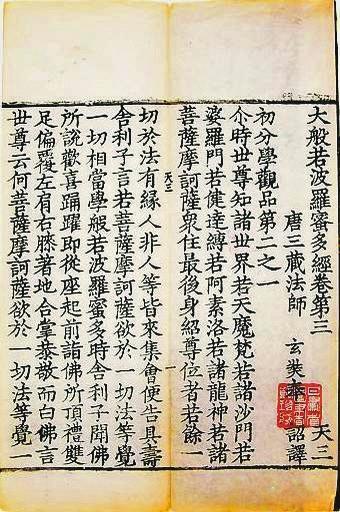 大般若波羅蜜多經卷第三
天三
唐三藏法師 玄奘奉 詔譯
初分學觀品第二之一
尒時世尊知諸世界若天魔梵若諸沙門若
婆羅門若健達縛若阿素洛若諸龍神若諸
菩薩摩訶薩衆住最後身紹尊位者若餘一
天三
切於法有緣人非人等皆來集會便告具壽
舍利子言若菩薩摩訶薩欲於一切法等覺
一切相當學般若波羅蜜多時舍利子聞佛
所說歡喜踊躍即從座起前詣佛所頂禮雙
足偏覆左肩右膝著地合掌恭敬而白佛言
世尊云何菩薩摩訶薩欲於一切法等覺一